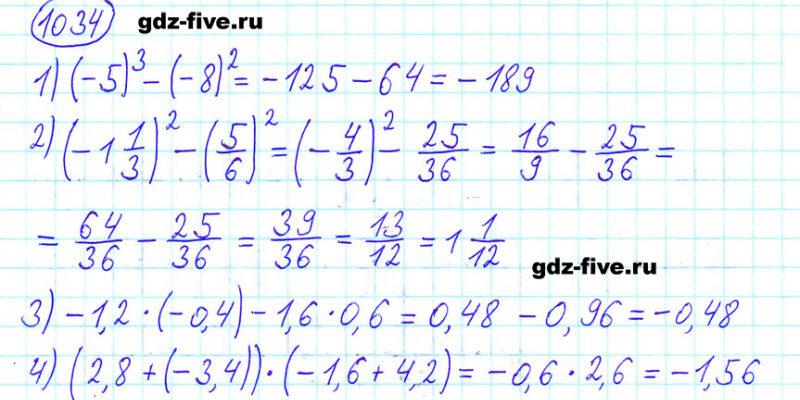 1034 gdz-five.ru
1) (-5)³ - (-8)² = -125 - 64 = -189
2) (-1 1/3)² - (5/6)² = (-4/3)² - 25/36 = 16/9 - 25/36 =
= 64/36 - 25/36 = 39/36 = 13/12 = 1 1/12
gdz-five.ru
3) -1,2 · (-0,4) - 1,6 · 0,6 = 0,48 - 0,96 = -0,48
4) (2,8 + (-3,4)) · (-1,6 + 4,2) = -0,6 · 2,6 = -1,56